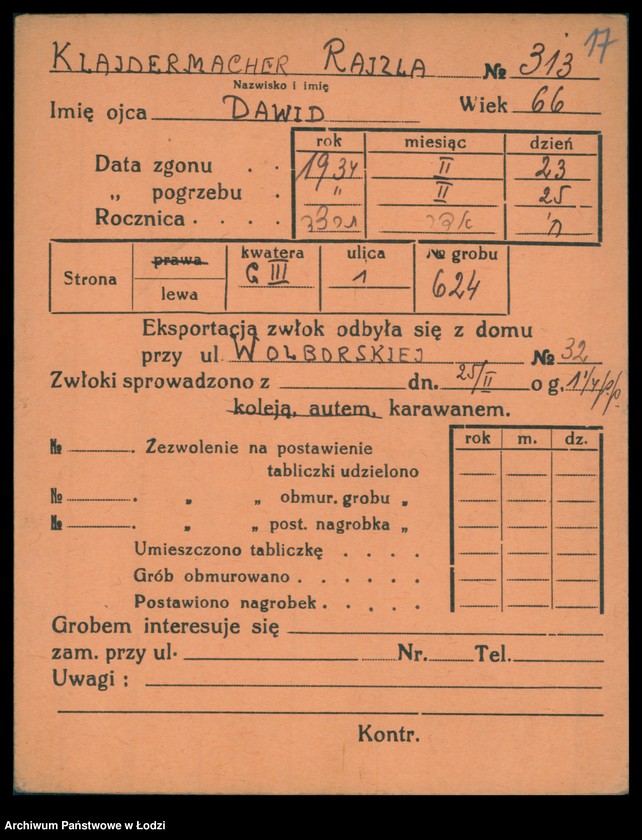 17
KLAJDERMACHER RAJZLA № 313
Nazwisko i imię
Imię ojca DAWID Wiek 66
rok miesiąc dzień
Data zgonu . . 1934 II 23
„ pogrzebu . " II 25
Rocznica . . . .
Strona prawa lewa kwatera G III ulica 1 № grobu 624
Eksportacja zwłok odbyła się z domu
przy ul WOLBORSKIEJ № 32
Zwłoki sprowadzono z dn. 25/II o g.
koleją, autem, karawanem.
rok m. dz.
№ . Zezwolenie na postawienie
tabliczki udzielono
№ . „ „ obmur. grobu „
№ . „ „ post. nagrobka „
Umieszczono tabliczkę . . . .
Grób obmurowano . . . . . .
Postawiono nagrobek . . . . .
Grobem interesuje się
zam. przy ul. Nr. Tel.
Uwagi :
Kontr.
Archiwum Państwowe w Łodzi